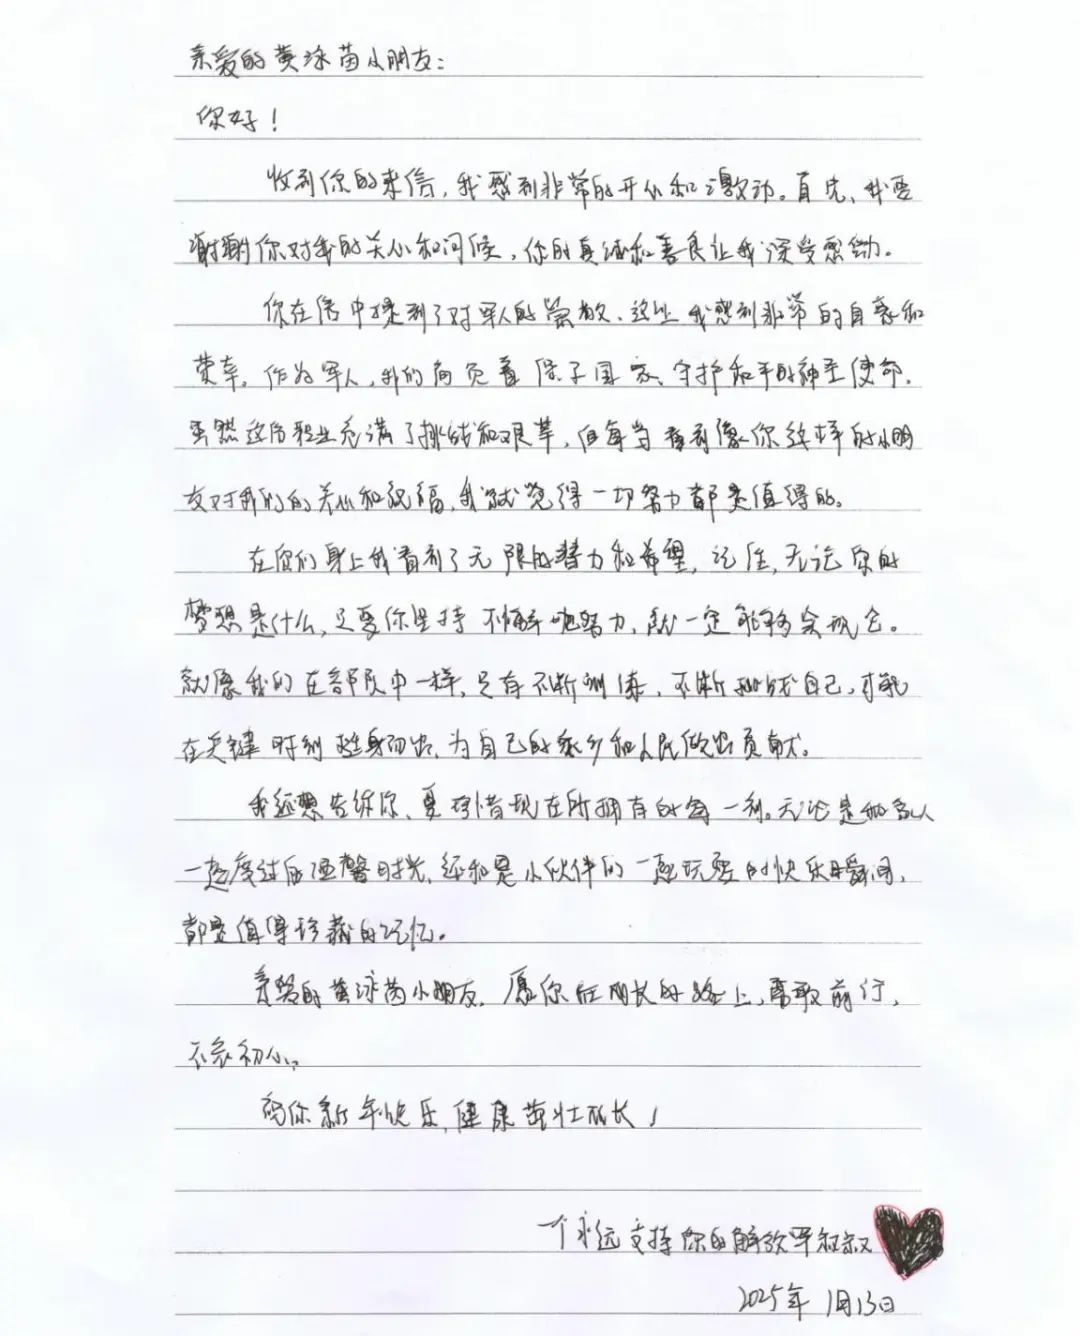 亲爱的黄泳茵小朋友：
你好！
收到你的来信，我感到非常的开心和激动。首先，我要
谢谢你对我的关心和问候，你的真诚和善良让我深受感动。
你在信中提到了对军人的崇敬、这让我感到非常的自豪和
荣幸。作为军人，我们肩负着保卫国家、守护和平的神圣使命，
虽然这份职业充满了挑战和艰苦，但每当看到像你这样的小朋
友对我们的关心和祝福，我就觉得一切努力都是值得的。
在你们身上我看到了无限的潜力和希望，记住，无论你的
梦想是什么，只要你坚持不懈地努力，就一定能够实现它。
就像我们在部队中一样，只有不断训练，不断挑战自己，才能
在关键时刻挺身而出，为自己的家乡和人民做出贡献。
我还想告诉你，要珍惜现在所拥有的每一刻。无论是和家人
一起度过的温馨时光，还和是小伙伴们一起玩耍的快乐瞬间，
都是值得珍藏的记忆。
亲爱的黄泳茵小朋友，愿你在成长的路上，勇敢前行，
不忘初心。
祝你新年快乐，健康茁壮成长！
一个永远支持你的解放军叔叔
2025年1月13日